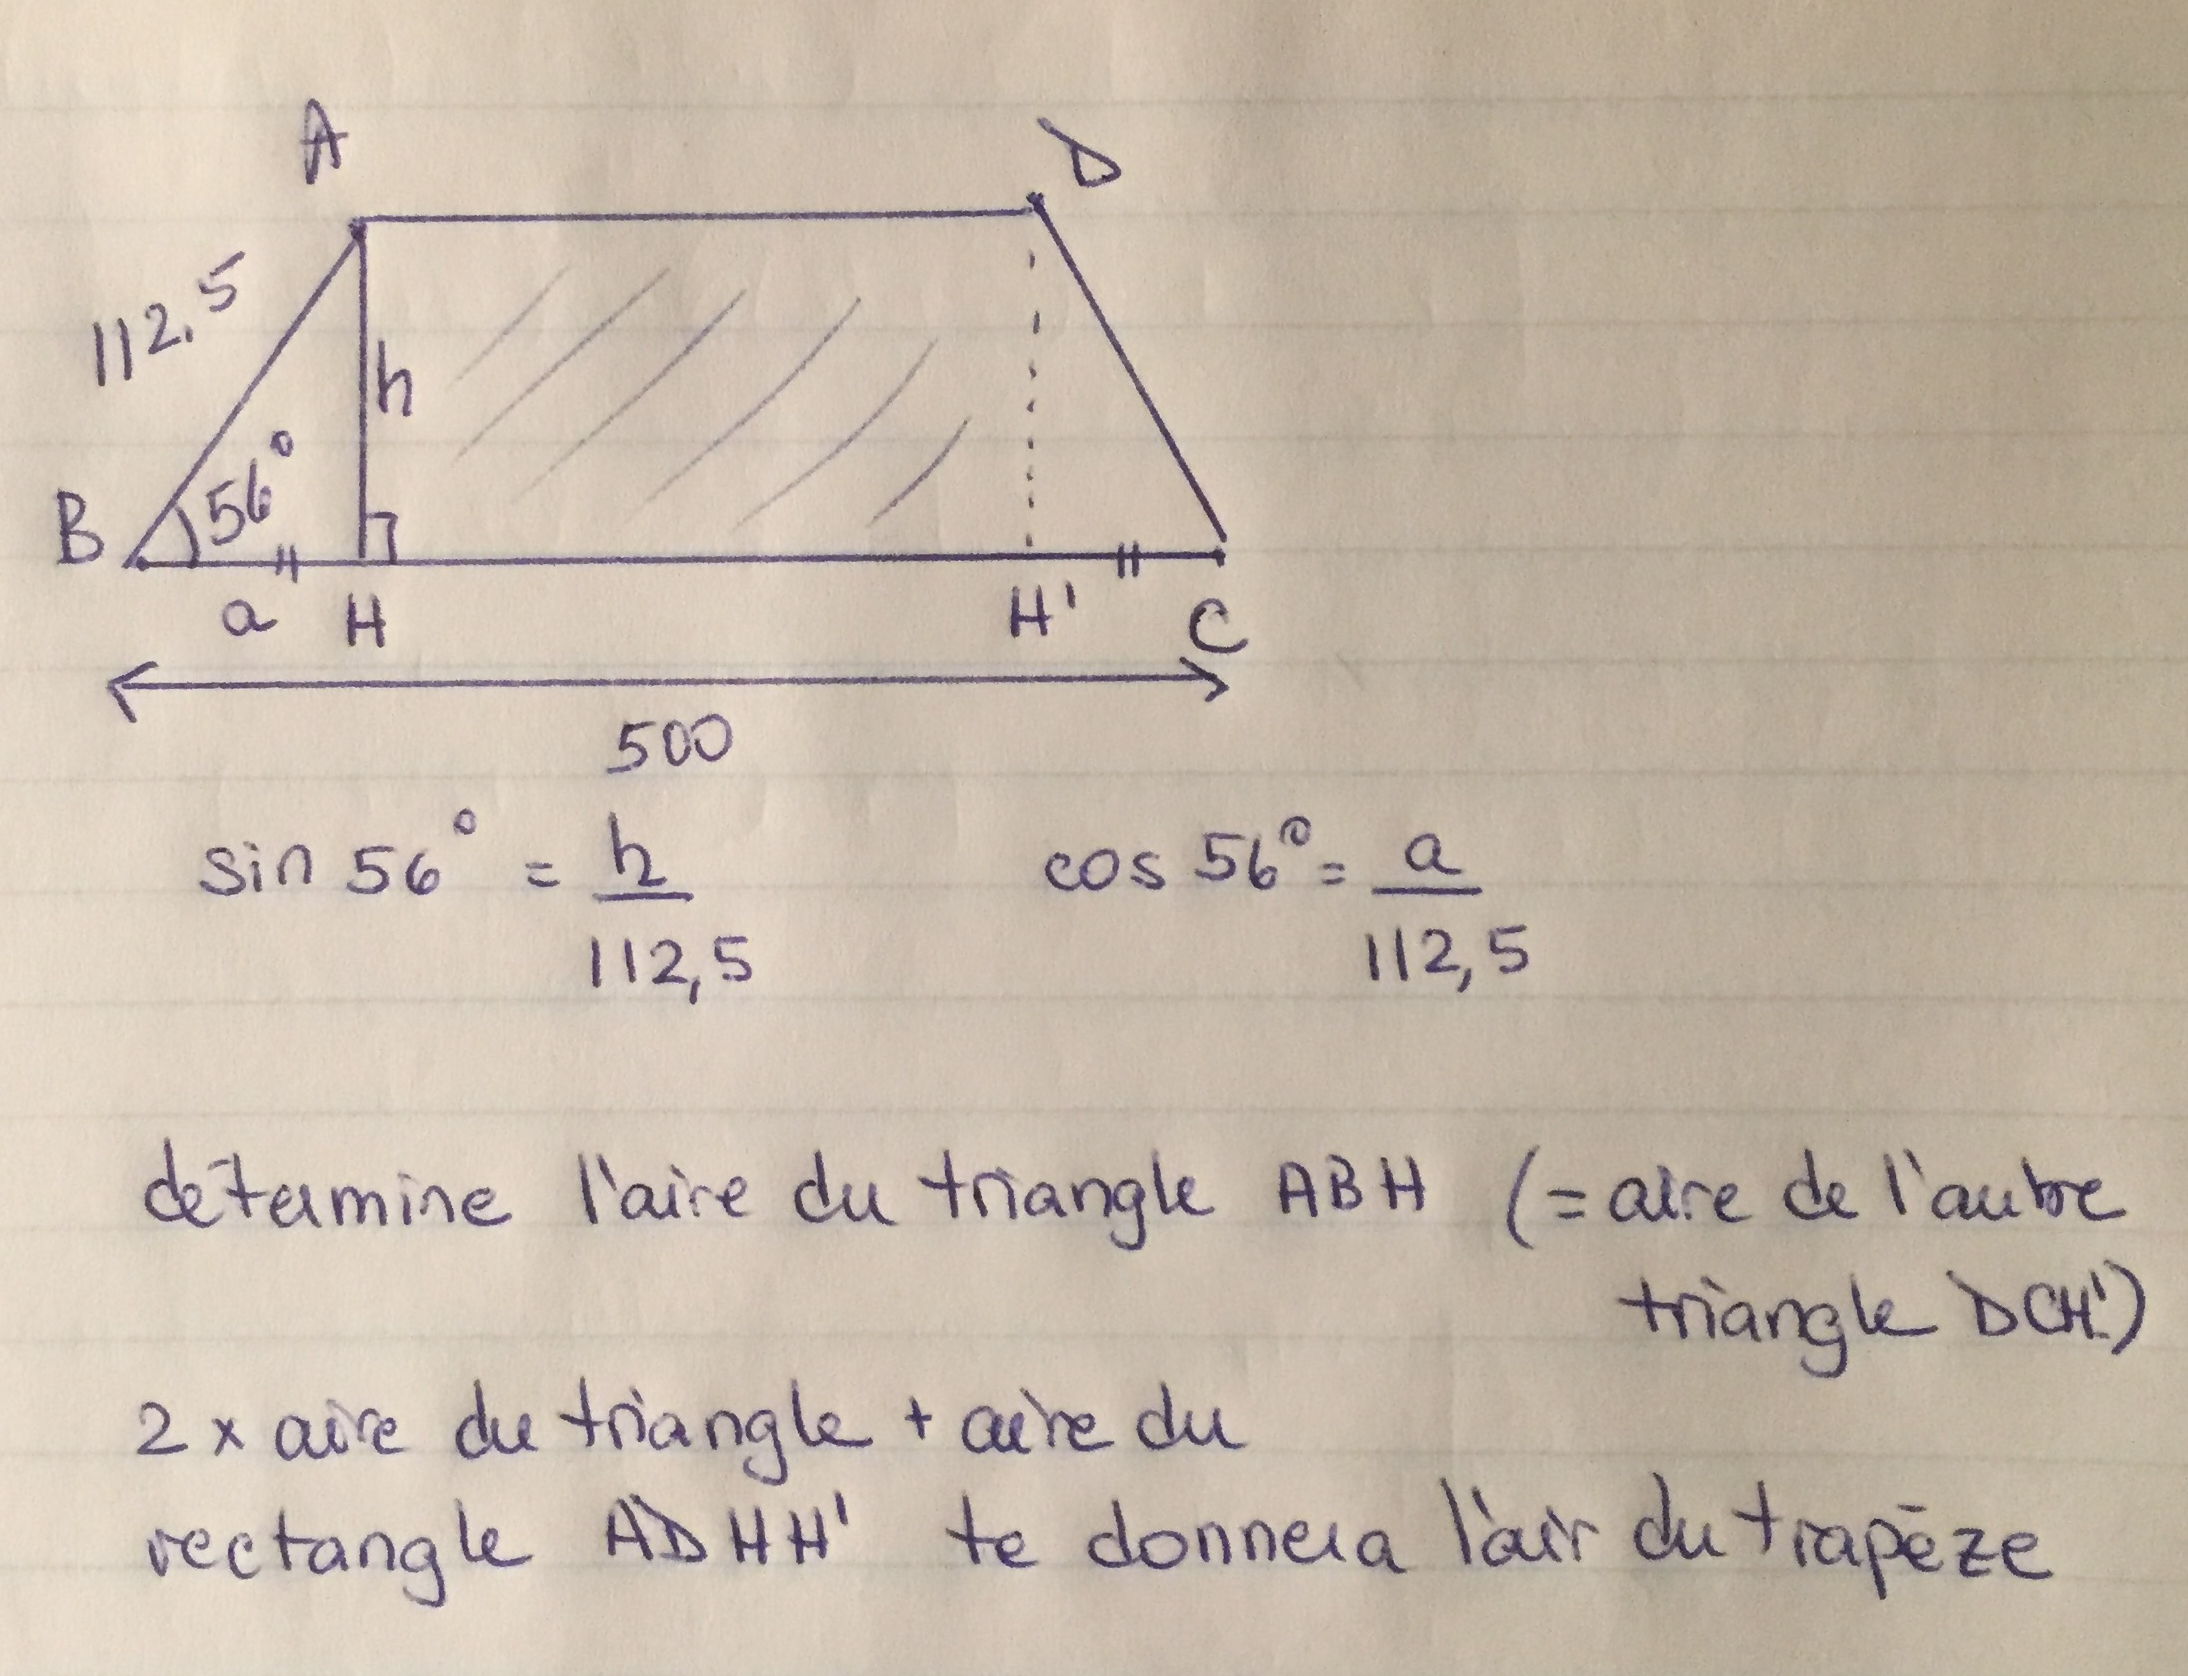 A D
112,5
h
B 56°
a H H' C
500
sin 56° = h/112,5 cos 56° = a/112,5
détermine l'aire du triangle ABH (= aire de l'autre
triangle DCH')
2 x aire du triangle + aire du
rectangle ADHH' te donnera l'air du trapèze